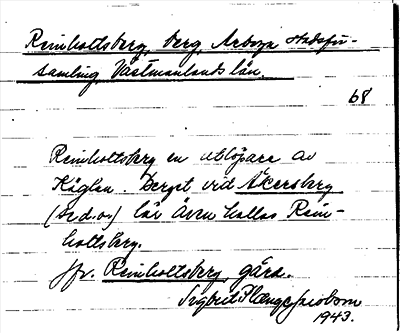 Reinholtsberg, berg, Arboga stadsför-
samling, Västmanlands län.
68
Reinholtsberg en utlöpare av
Käglan. Berget vid Åkersberg
(se d. o.) lär även kallas Rein-
holtsberg.
Jfr. Reinholtsberg, gård.
Sigbrit Plænge Jacobson
1943.